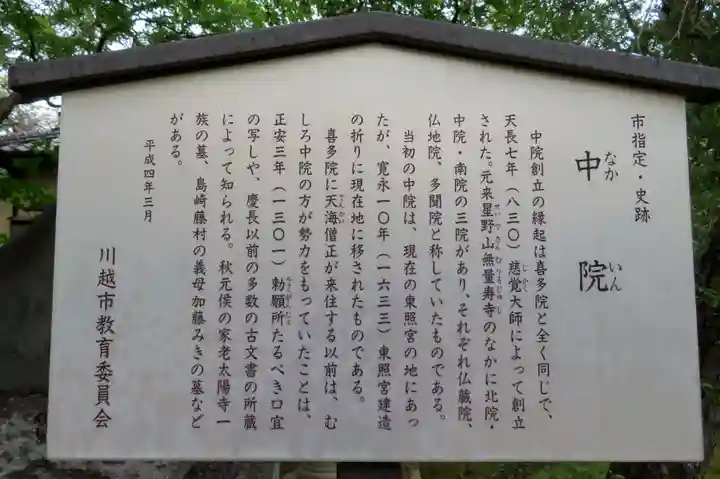 市指定・史跡
中院
なか いん
中院創立の縁起は喜多院と全く同じで、
天長七年(八三〇)慈覚大師によって創立
じかく
された。元来星野山無量寿寺のなかに北院・
せいやさんむりょうじゅじ
中院・南院の三院があり、それぞれ仏蔵院、
仏地院、多聞院と称していたものである。
当初の中院は、現在の東照宮の地にあっ
たが、寛永一〇年(一六三三)東照宮建造
の折りに現在地に移されたものである。
喜多院に天海僧正が来住する以前は、む
てんかい
しろ中院の方が勢力をもっていたことは、
正安三年(一三〇一)勅願所たるべき口宜
ちょくがんじょ
の写しや、慶長以前の多数の古文書の所蔵
によって知られる。秋元侯の家老太陽寺一
族の墓、島崎藤村の義母加藤みきの墓など
がある。
平成四年三月
川越市教育委員会